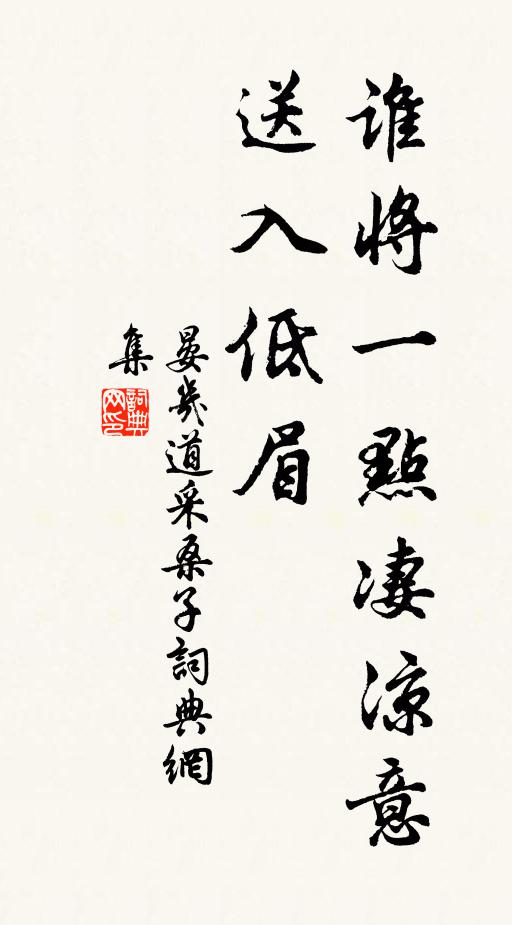 誰將一點凄涼意
送入低眉
晏幾道采桑子詞典網
集
詞典
网印